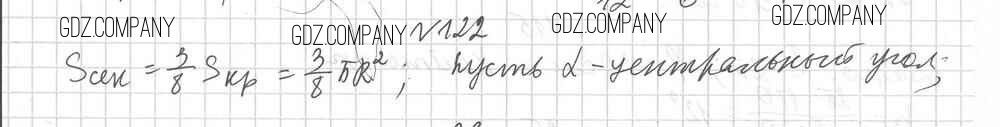 GDZ.COMPANY GDZ.COMPANY №122 GDZ.COMPANY GDZ.COMPANY
Sсек = 3/8 Sкр = 3/8 πR²; пусть α - центральный угол;